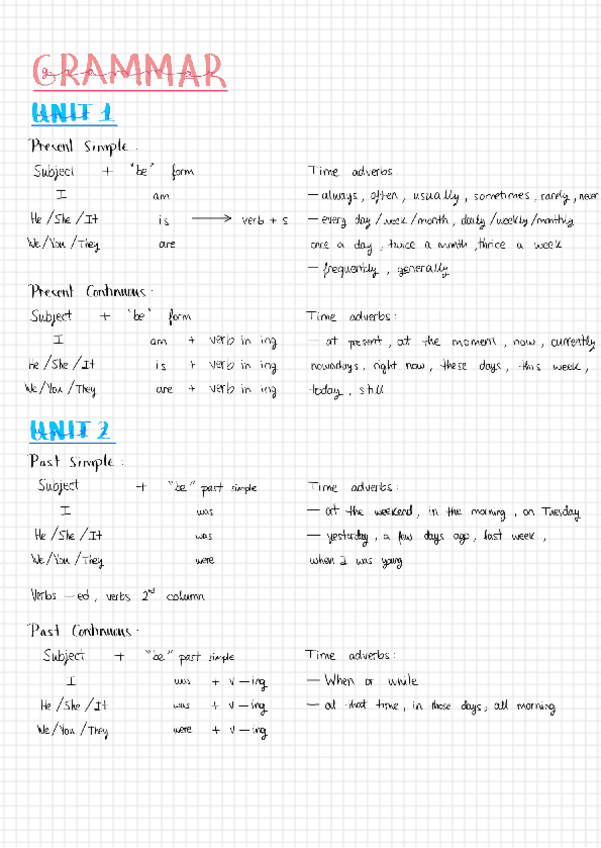 GRAMMAR
UNIT 1
Present Simple :
Subject + "be" form
I am
He / She / It is → verb + s
We / You / They are
Time adverbs
— always, often, usually, sometimes, rarely, never
— every day / week / month, daily / weekly / monthly
once a day, twice a month, thrice a week
— frequently, generally
Present Continuous :
Subject + "be" form
I am + verb in ing
He / She / It is + verb in ing
We / You / They are + verb in ing
Time adverbs :
— at present, at the moment, now, currently
nowadays, right now, these days, this week,
today, still
UNIT 2
Past Simple :
Subject + "be" past simple
I was
He / She / It was
We / You / They were
Verbs —ed, verbs 2nd column
Time adverbs :
— at the weekend, in the morning, on Tuesday
— yesterday, a few days ago, last week,
when I was young
Past Continuous :
Subject + "be" past simple
I was + v —ing
He / She / It was + v —ing
We / You / They were + v —ing
Time adverbs :
— When or while
— at that time, in those days, all morning